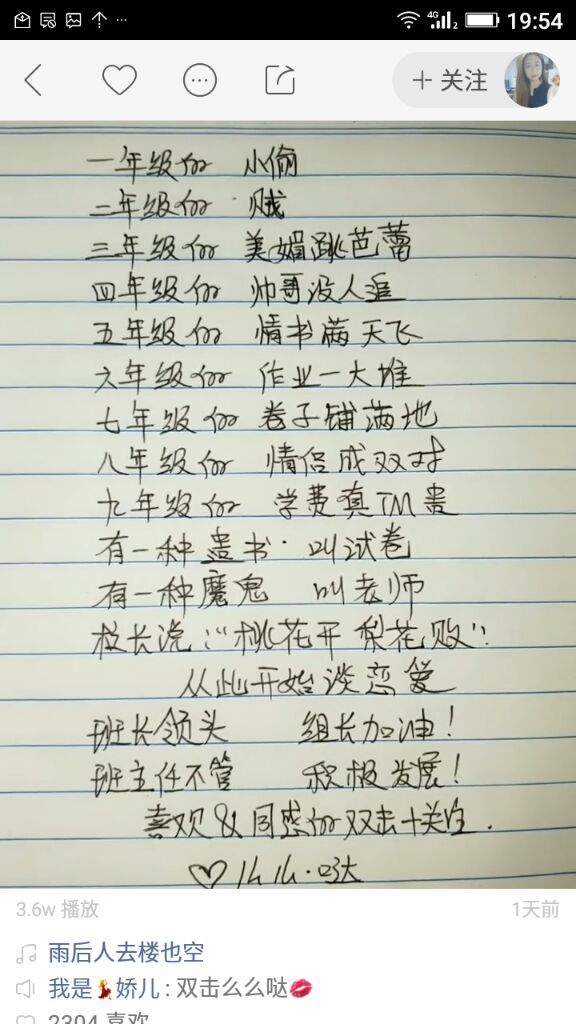 4G 2 19:54
+ 关注
一年级的 小偷
二年级的 贼
三年级的 美媚跳芭蕾
四年级的 帅哥没人追
五年级的 情书满天飞
六年级的 作业一大堆
七年级的 卷子铺满地
八年级的 情侣成双对
九年级的 学费真TM贵
有一种遗书 叫试卷
有一种魔鬼 叫老师
校长说:"桃花开 梨花败"
从此开始谈恋爱
班长领头 组长加油!
班主任不管 积极发展!
喜欢&同感的双击+关注.
♡么么·哒
3.6w 播放 1天前
雨后人去楼也空
我是💃娇儿 : 双击么么哒💋
2304 喜欢